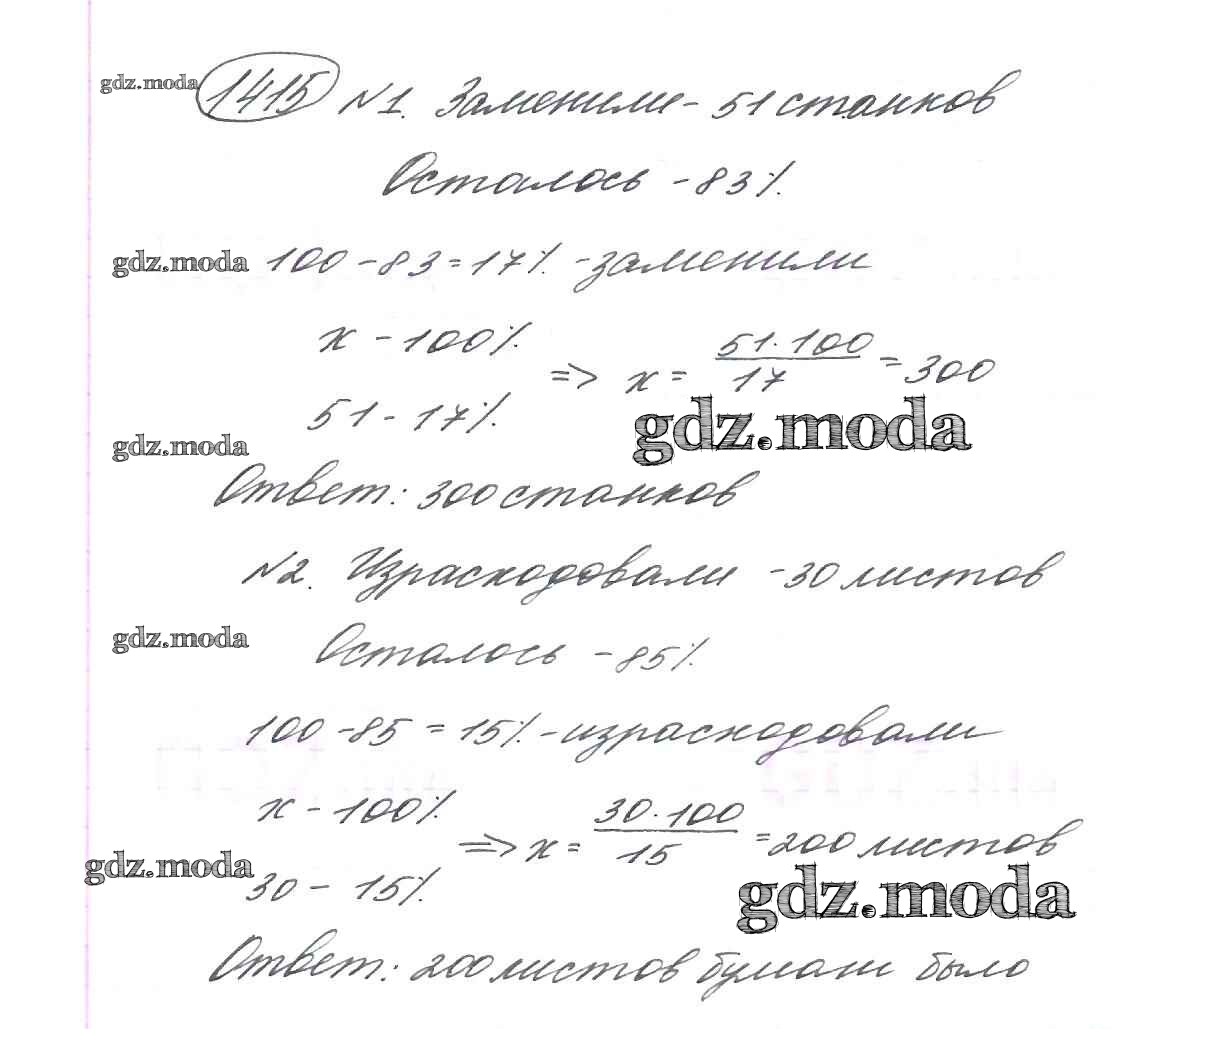 gdz.moda 1415 №1. Заменили - 51 станков
Осталось - 83%.
gdz.moda 100 - 83 = 17% - заменили
x - 100%.
=> x = 51·100 / 17 = 300
51 - 17%.
gdz.moda
gdz.moda
Ответ: 300 станков
№2. Израсходовали - 30 листов
gdz.moda
Осталось - 85%.
100 - 85 = 15% - израсходовали
x - 100%.
=> x = 30·100 / 15 = 200 листов
gdz.moda
30 - 15%.
gdz.moda
Ответ: 200 листов бумаги было